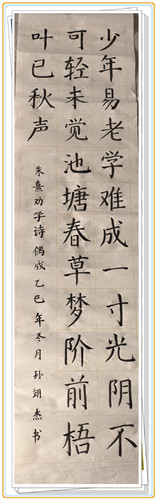 少年易老学难成一寸光阴不
可轻未觉池塘春草梦阶前梧
叶已秋声
朱熹劝学诗偶成乙巳年冬月孙翊杰书